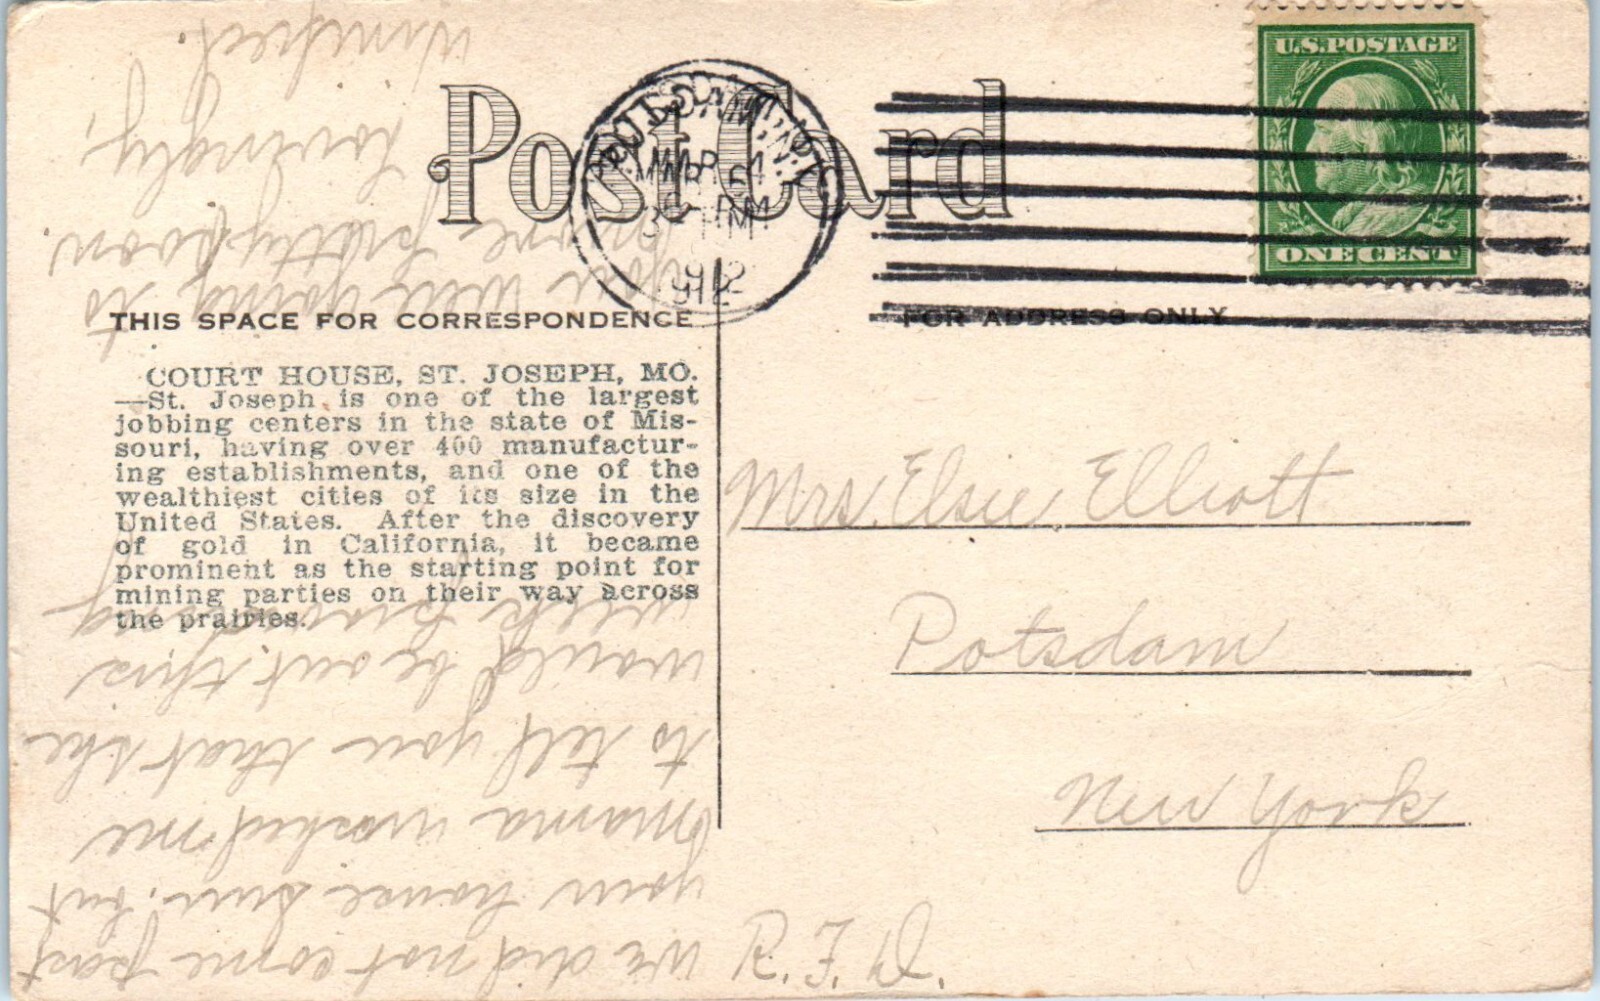 Post Card
U.S. POSTAGE
ONE CENT
POTSDAM, N.Y.
MAR
PM
1912
THIS SPACE FOR CORRESPONDENCE
FOR ADDRESS ONLY
COURT HOUSE, ST. JOSEPH, MO.
—St. Joseph is one of the largest
jobbing centers in the state of Mis-
souri, having over 400 manufactur-
ing establishments, and one of the
wealthiest cities of its size in the
United States. After the discovery
of gold in California, it became
prominent as the starting point for
mining parties on their way across
the prairies.
Mrs. Elsie Elliott
Potsdam
New York
R.F.D.
we did not come past
your house Sun. but
Mama wished me
to tell you that she
would be out this
week
you were going to
move pretty soon
Lovingly,
Winifred.